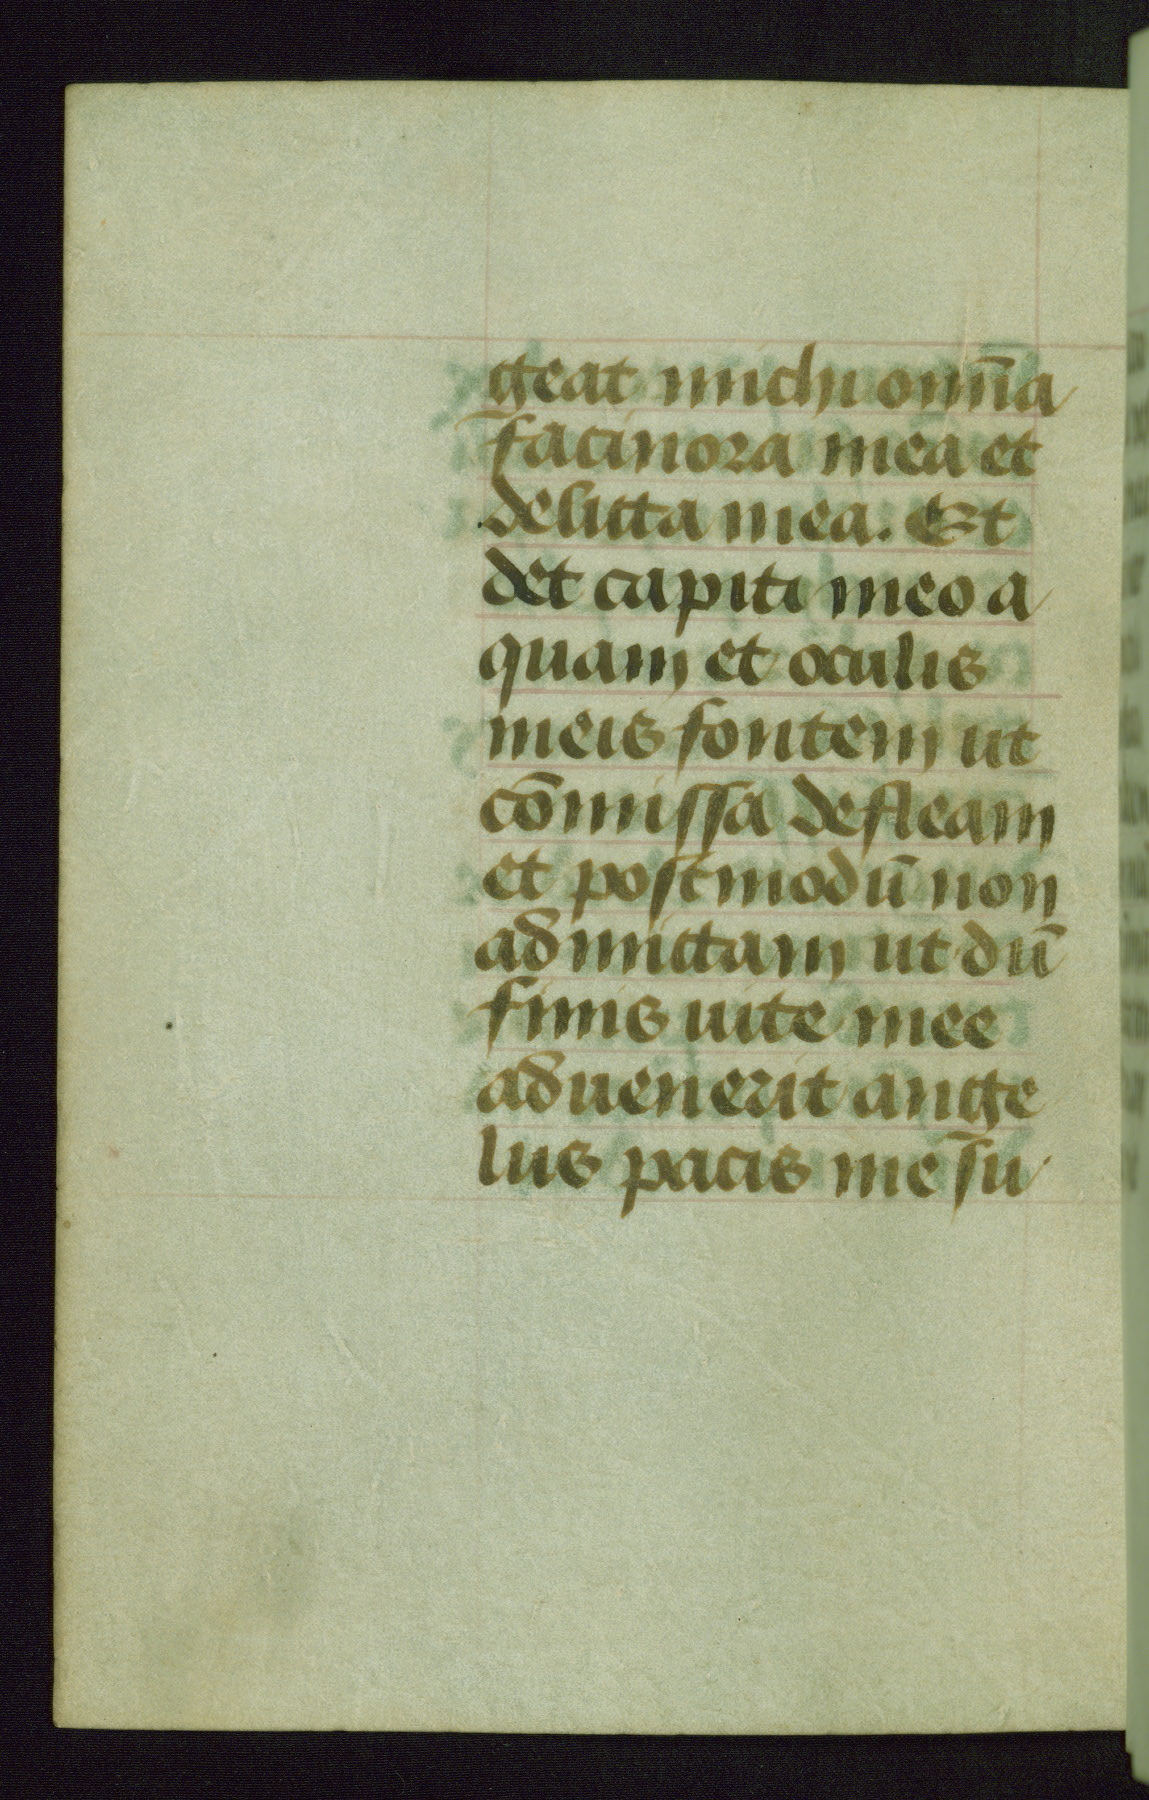 geat michi om̄a
facinora mea et
delicta mea. Et
det capiti meo a
quam et oculis
meis fontem ut
cōmissa defleam
et postmodū non
admittam ut dū
finis uite mee
aduenerit ange
lus pacis me su